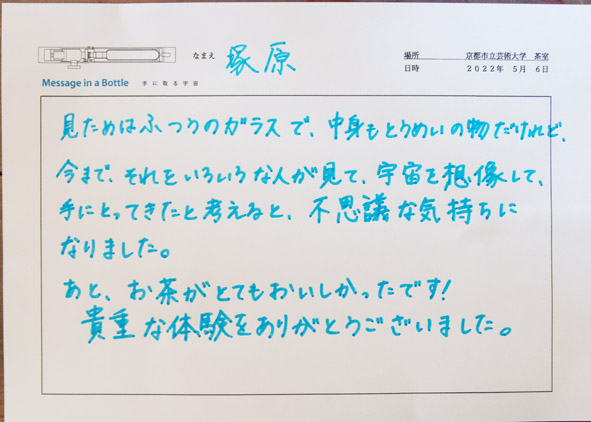 なまえ 塚原
場所 京都市立芸術大学 茶室
日時 2022年 5月 6日
Message in a Bottle 手に取る宇宙
見ためはふつうのガラスで、中身もとうめいの物だけれど、
今まで、それをいろいろな人が見て、宇宙を想像して、
手にとってきたと考えると、不思議な気持ちに
なりました。
あと、お茶がとてもおいしかったです!
貴重な体験をありがとうございました。